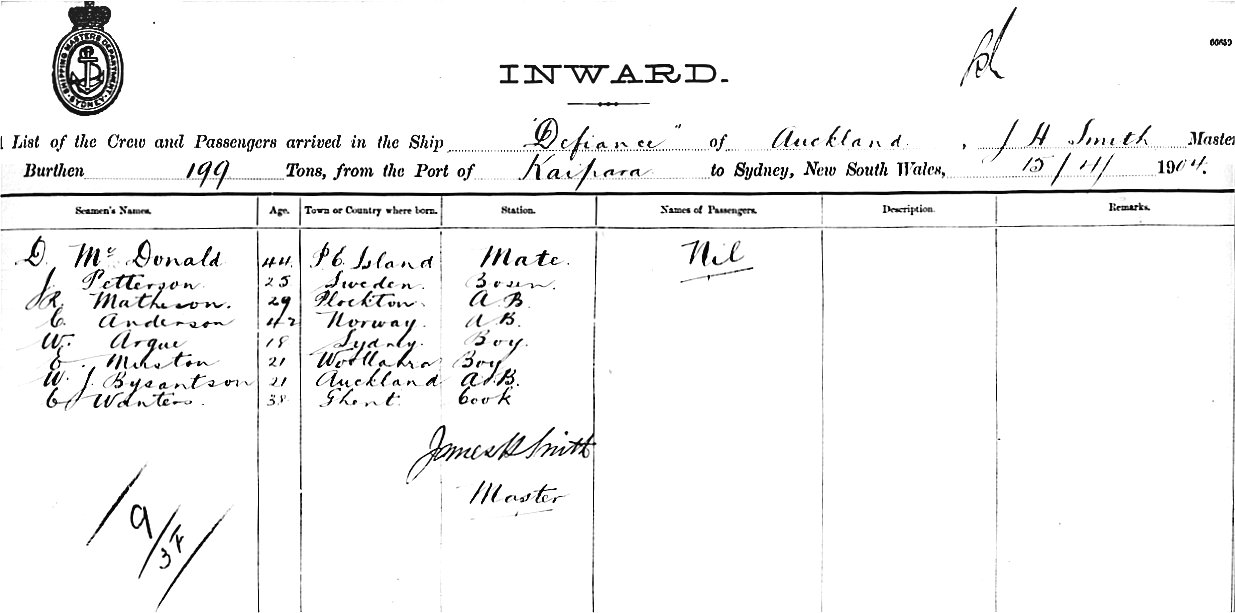 SHIPPING MASTERS DEPARTMENT SYDNEY
60659
INWARD.
List of the Crew and Passengers arrived in the Ship "Defiance" of Auckland, J H Smith Master
Burthen 199 Tons, from the Port of Kaipara to Sydney, New South Wales, 15/4/ 1904.
Seamen's Names. Age. Town or Country where born. Station. Names of Passengers. Description. Remarks.
D. Mc Donald 44 P E Island Mate. Nil
J Petterson 25 Sweden. Bosun.
R. Matheson. 29 Plockton. A B.
C. Anderson 42 Norway. A B.
W. Argue 18 Sydney. Boy.
E. Munston 21 Woollahra Boy
W. J. Bysantson 21 Auckland A.B.
C Wanters. 38 Ghent. Cook
James H Smith
Master
9/3F